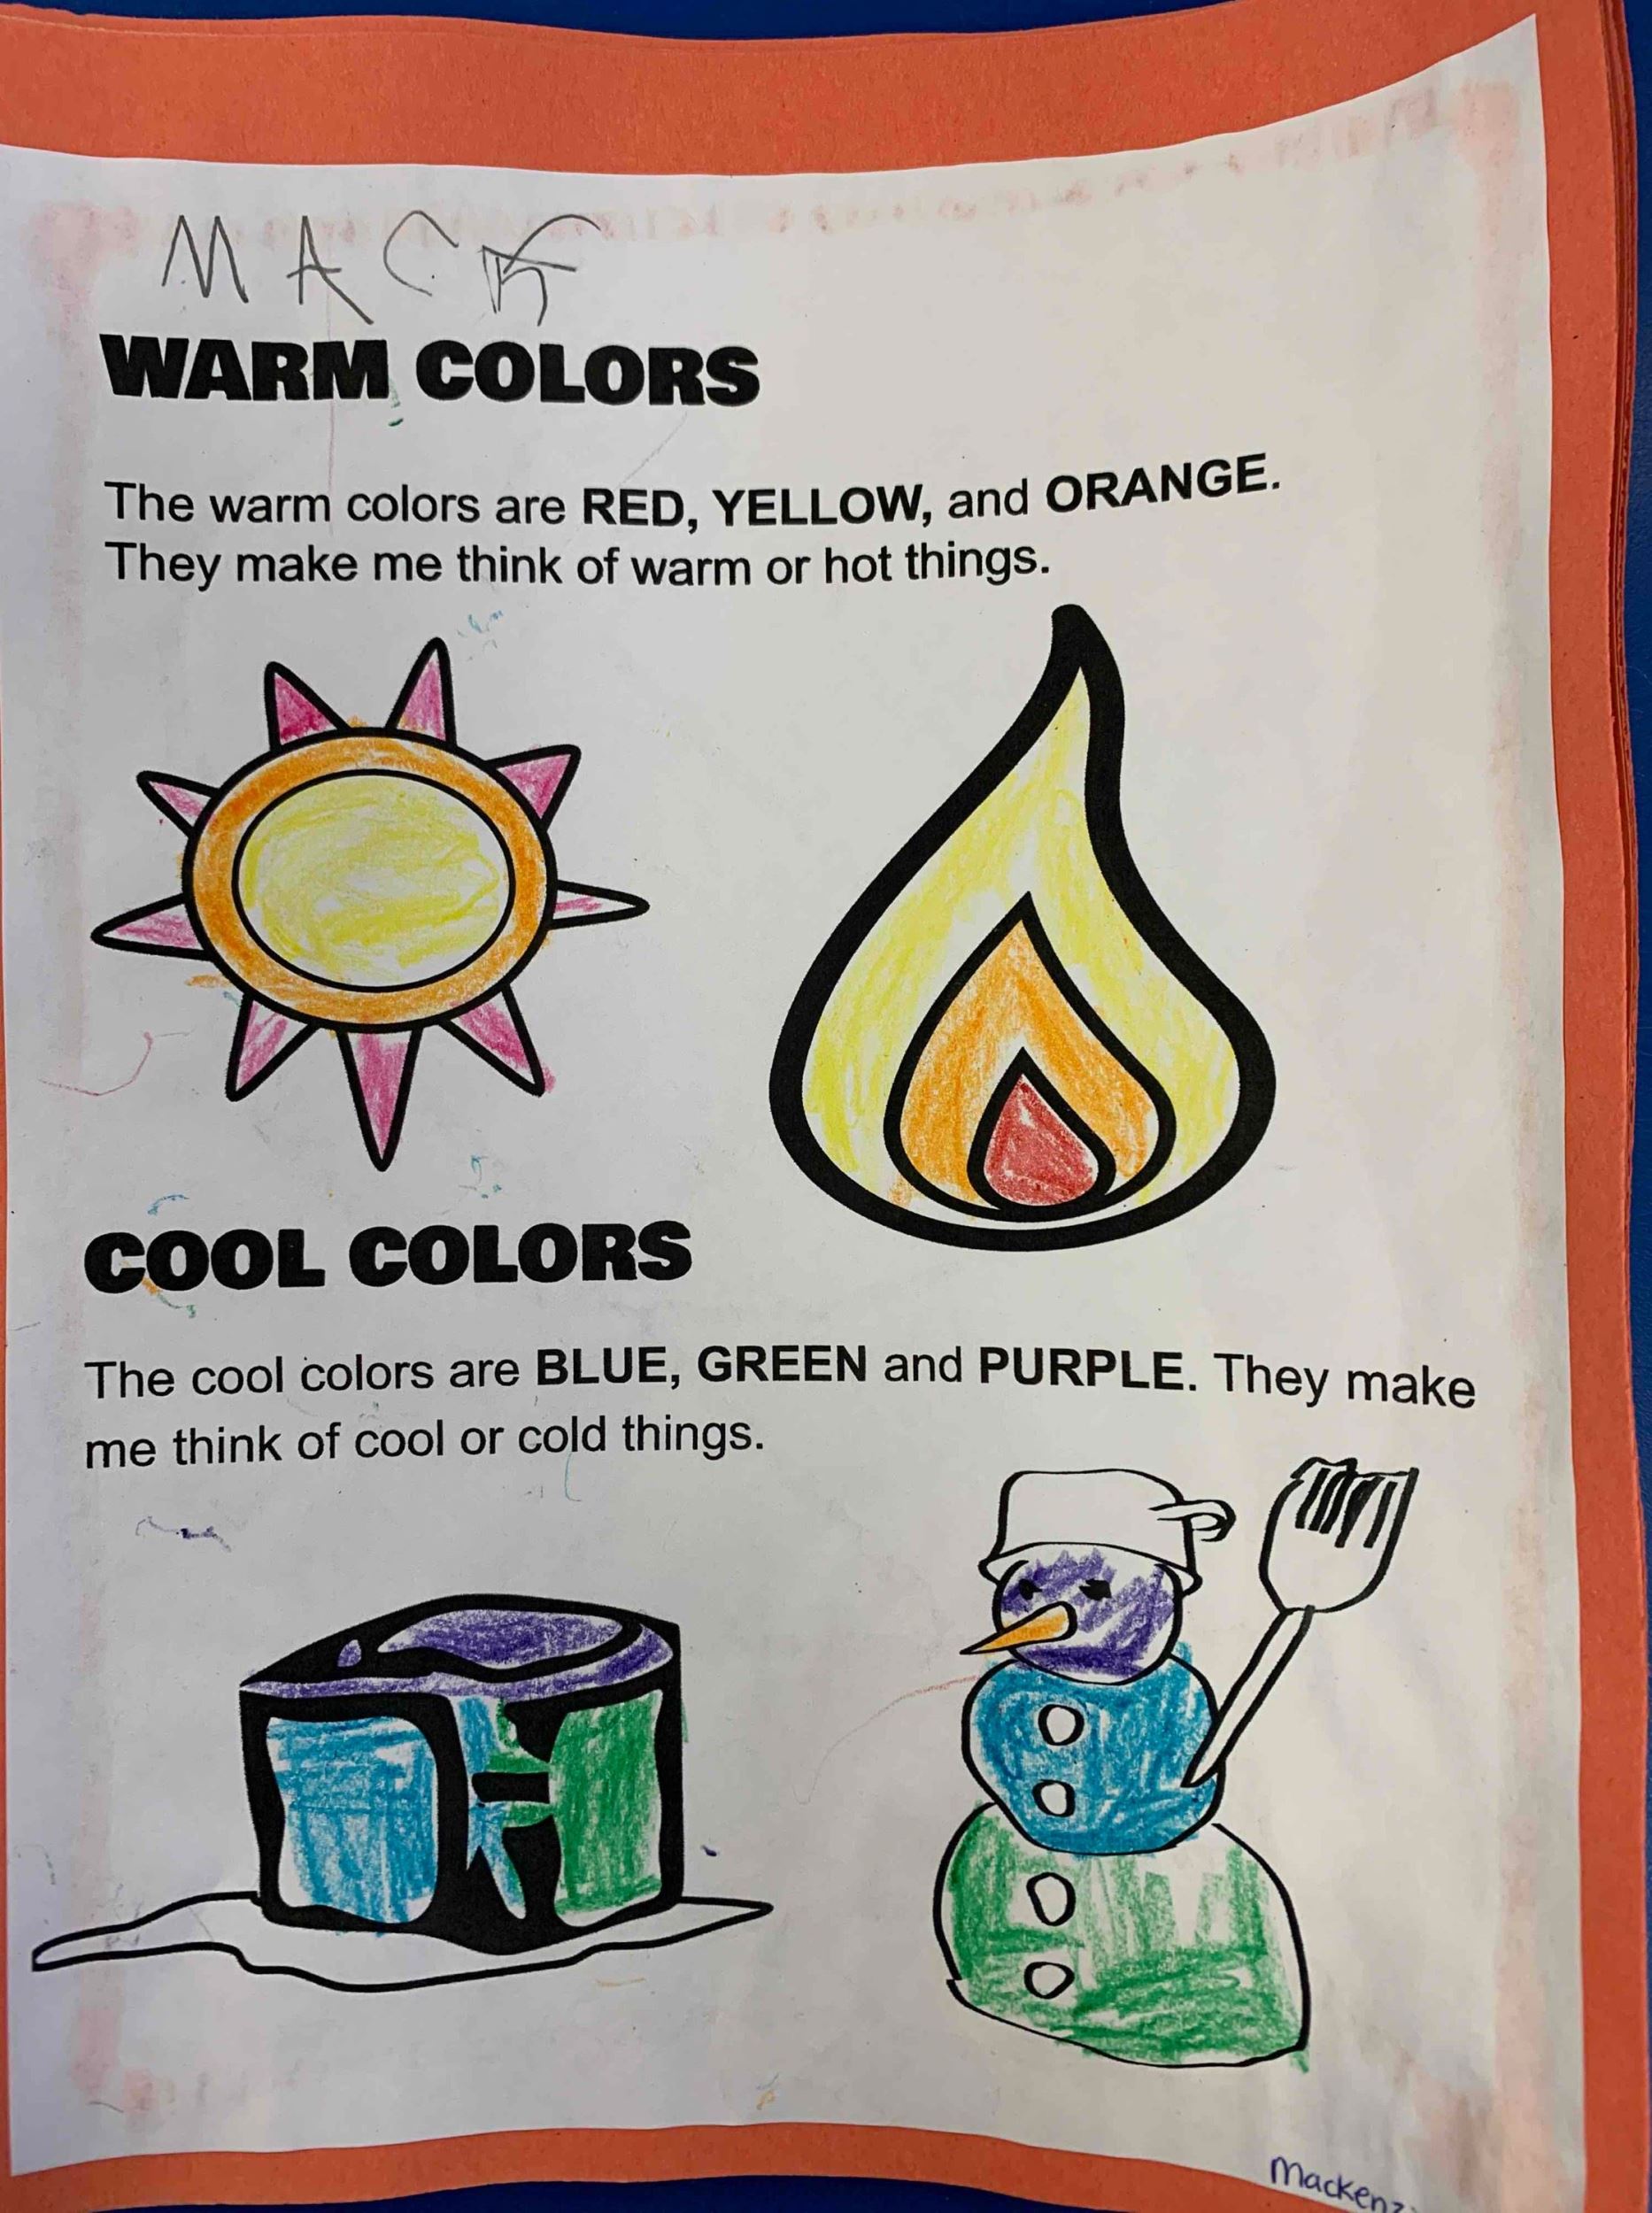 MACK
WARM COLORS
The warm colors are RED, YELLOW, and ORANGE.
They make me think of warm or hot things.
COOL COLORS
The cool colors are BLUE, GREEN and PURPLE. They make
me think of cool or cold things.
Mackenz